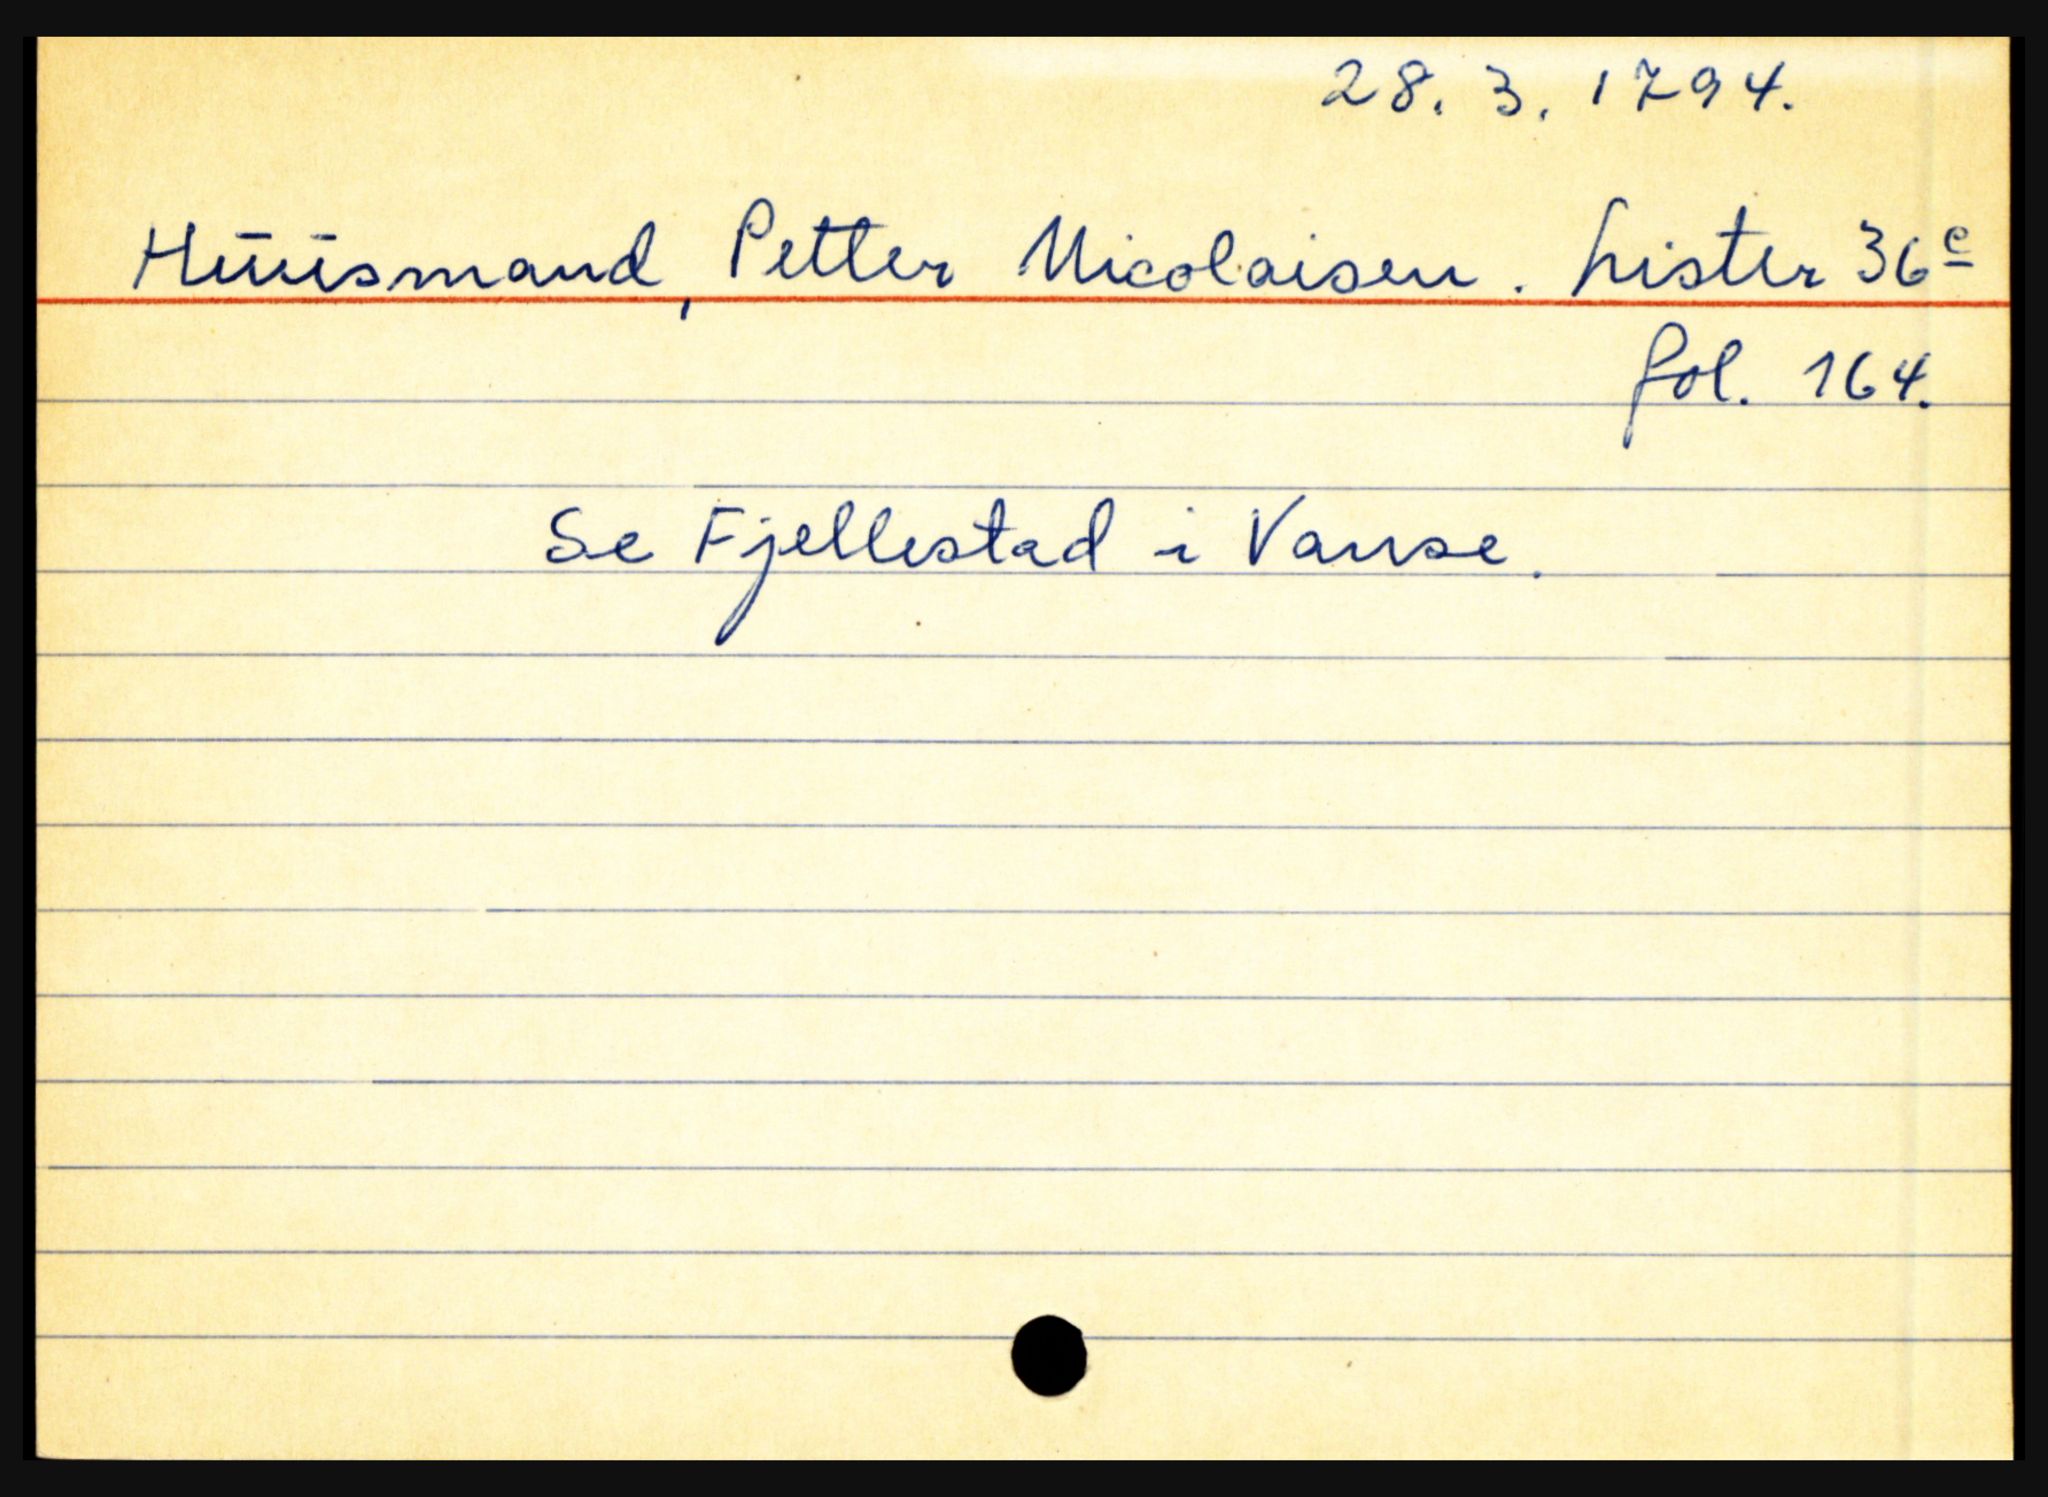 28. 3. 1794.
Huusmand, Petter Nicolaisen. Lister 36 c
fol. 164.
Se Fjellestad i Vanse.